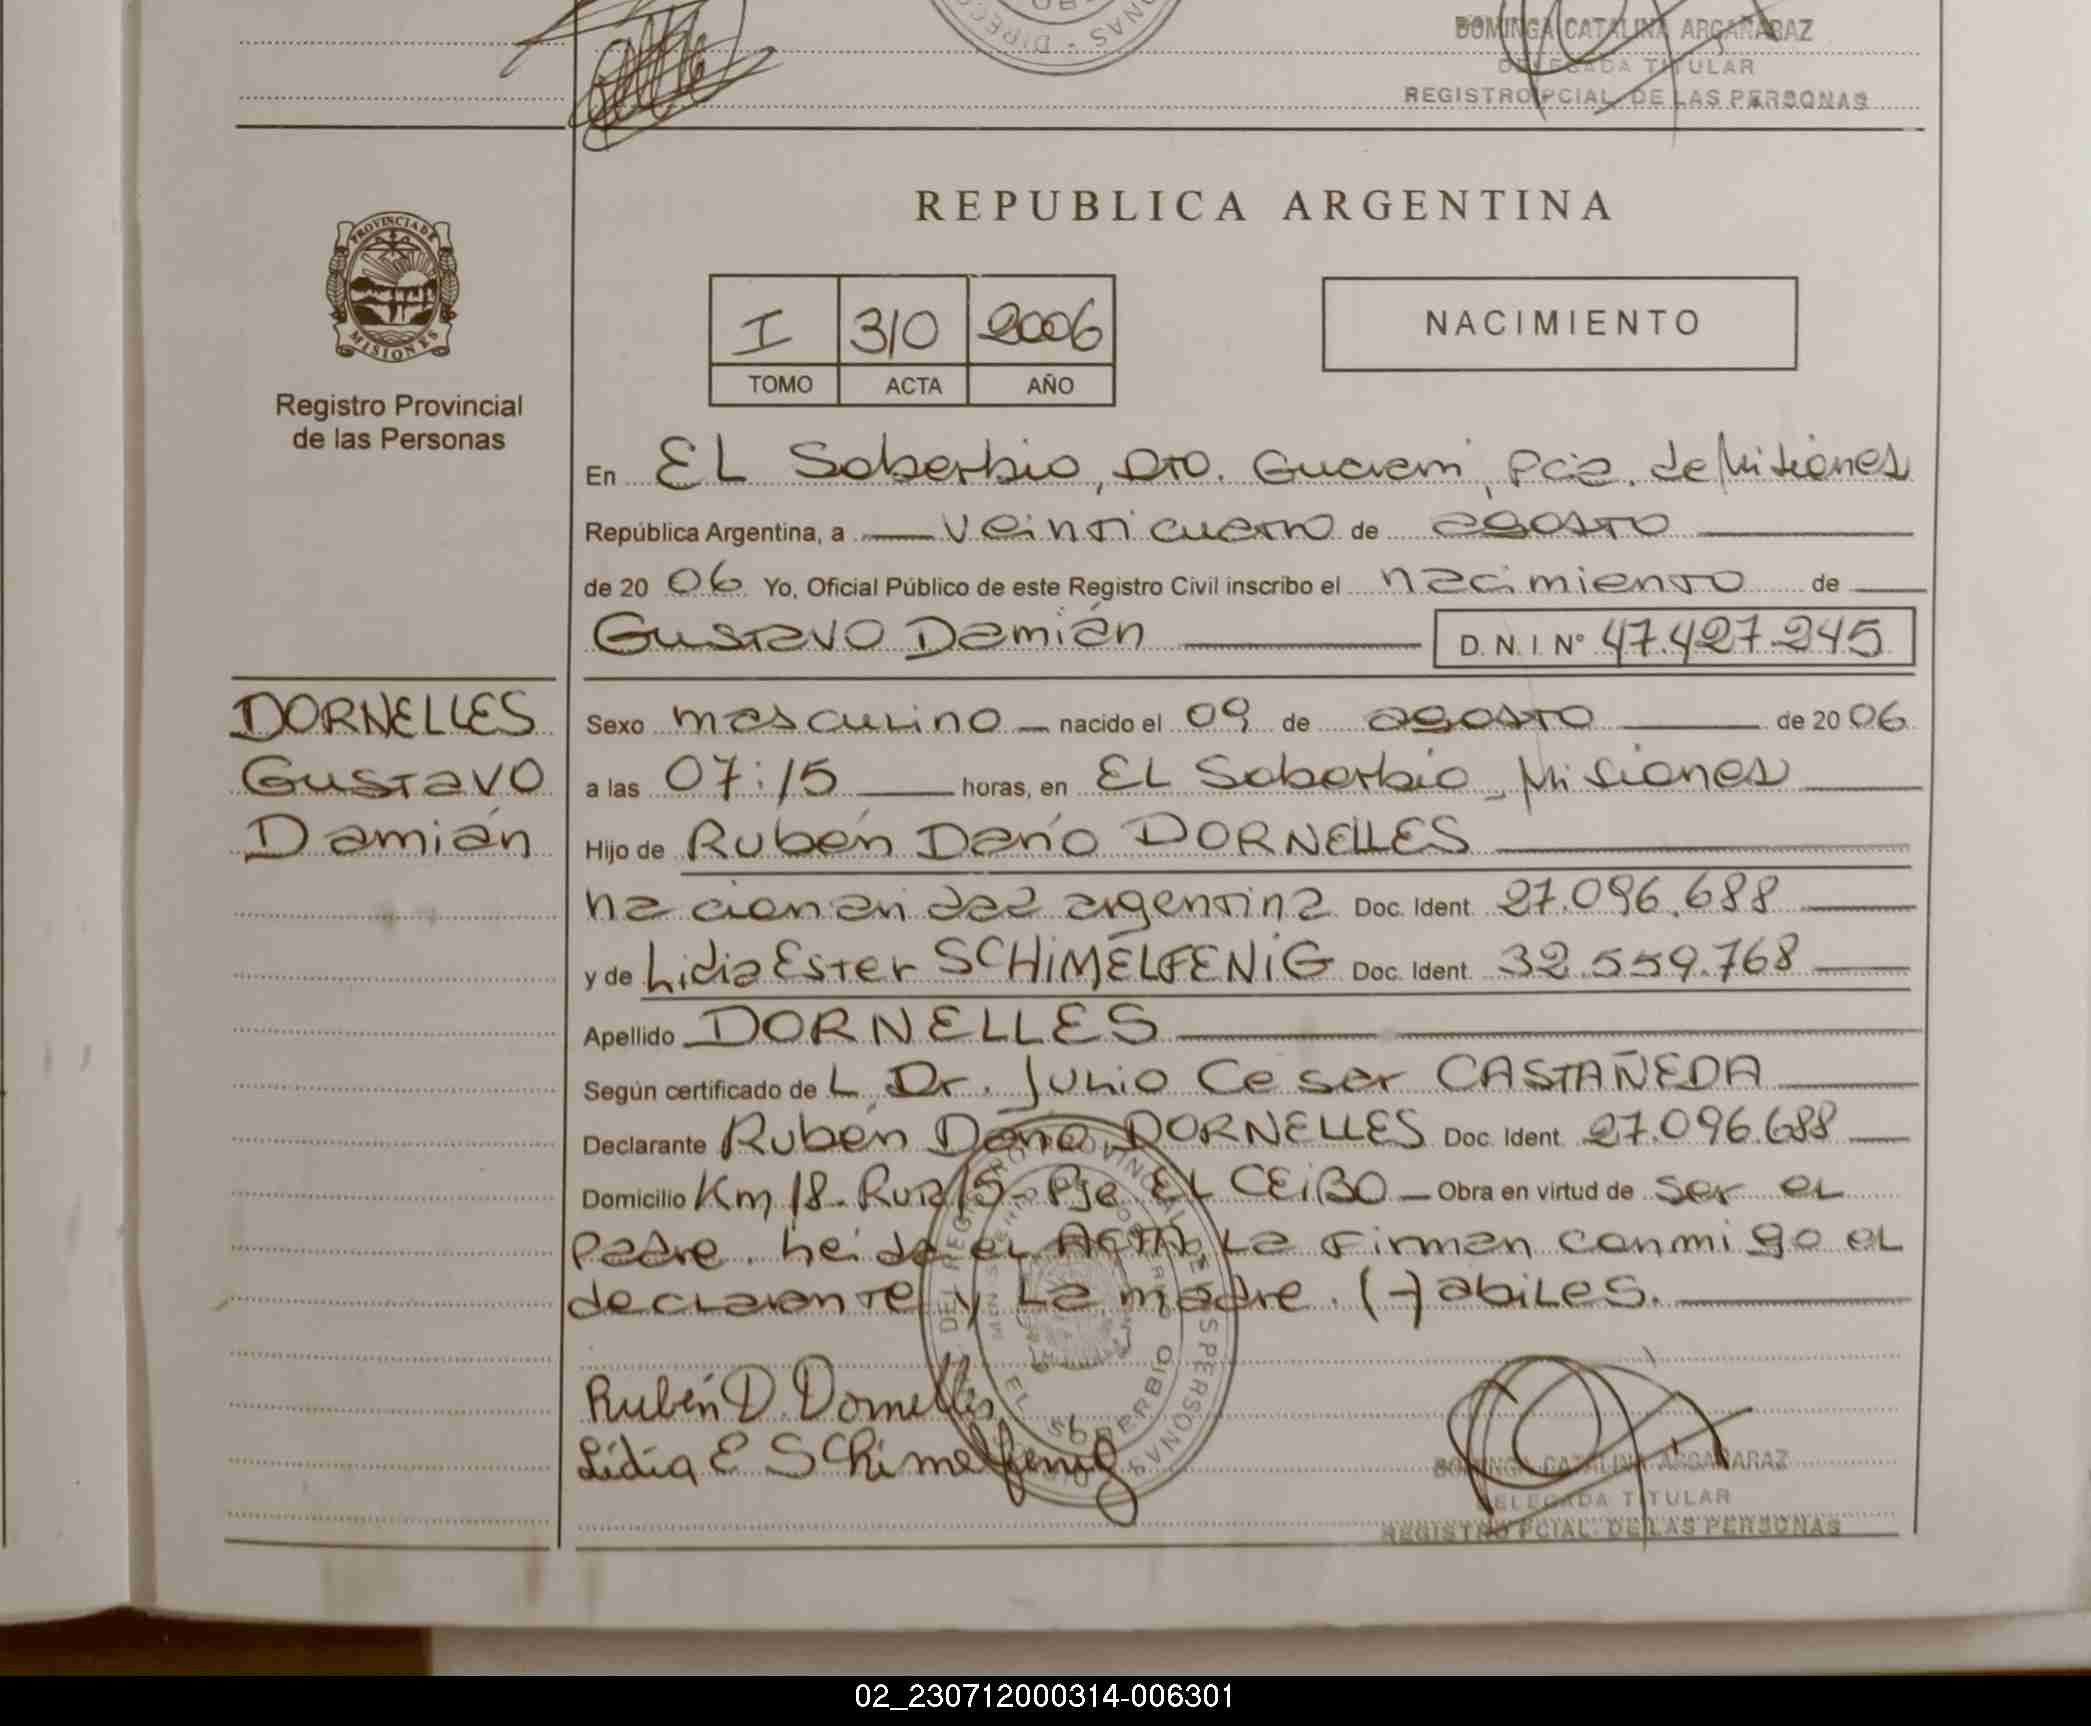 DOMINGA CATALINA ARGAÑARAZ
DELEGADA TITULAR
REGISTRO PCIAL. DE LAS PERSONAS
PROVINCIA DE
MISIONES
Registro Provincial
de las Personas
REPUBLICA ARGENTINA
I 310 2006
TOMO ACTA AÑO
NACIMIENTO
En EL Soberbio, Dto. Guarani, Pcia. de Misiones
República Argentina, a veinticuatro de agosto
de 20 06 Yo, Oficial Público de este Registro Civil inscribo el nacimiento de
Gustavo Damián D. N. I. Nº 47.427.245
DORNELLES
Gustavo
Damián
Sexo masculino nacido el 09 de agosto de 20 06
a las 07:15 horas, en EL Soberbio - Misiones
Hijo de Rubén Darío DORNELLES
nacionalidad argentina Doc. Ident. 27.096.688
y de Lidia Ester SCHiMELFENiG Doc. Ident. 32.559.768
Apellido DORNELLES
Según certificado de L. Dr. Julio Cesar CASTAÑEDA
Declarante Rubén Darío DORNELLES Doc. Ident. 27.096.688
Domicilio Km 18 - Ruta 15 - Pje EL CEiBO Obra en virtud de ser el
padre. Leida el ACTA, La firman conmigo el
declarante y La madre. (H)abiles.
Rubén D. Dornelles
Lidia E SChimelfenig
DOMINGA CATALINA ARGAÑARAZ
DELEGADA TITULAR
REGISTRO PCIAL. DE LAS PERSONAS
02_230712000314-006301